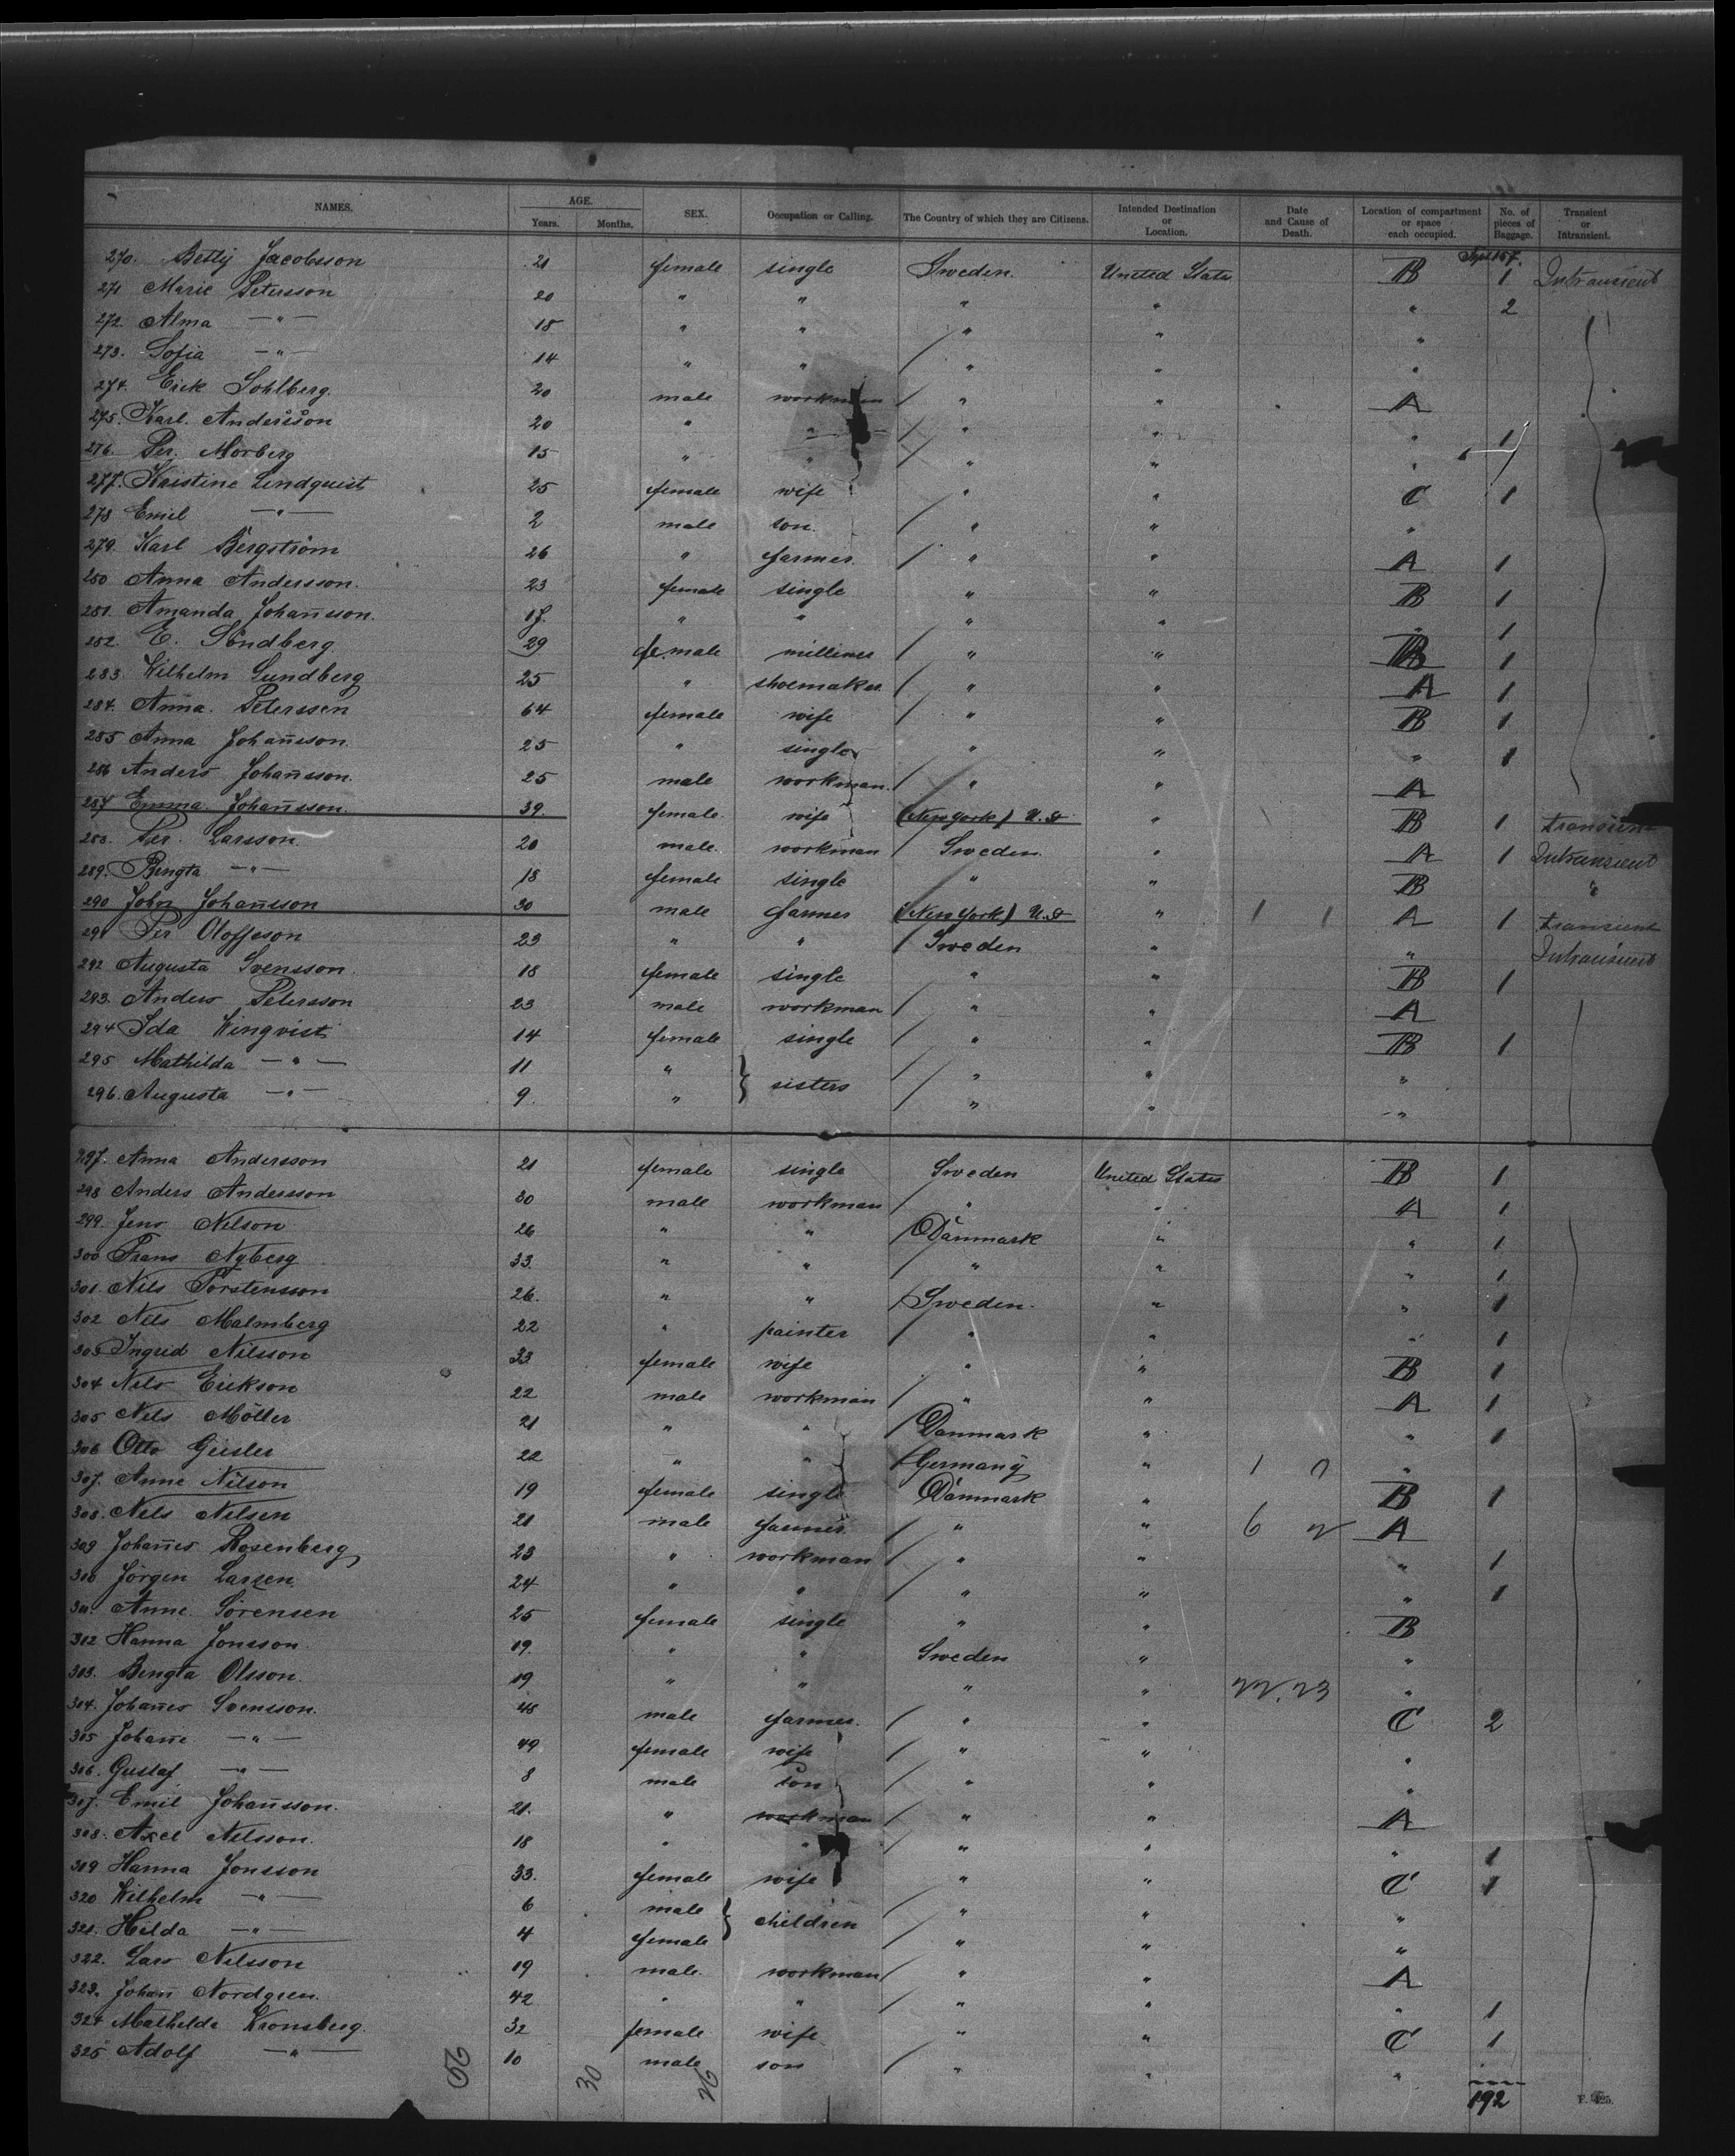 NAMES. AGE. Years. Months. SEX. Occupation or Calling. The Country of which they are Citizens. Intended Destination or Location. Date and Cause of Death. Location of compartment or space each occupied. No. of pieces of Baggage. Transient or Intransient.
270. Betty Jacobsson 21 female single Sweden. United States B 1 Intransient
271 Marie Petersson 20 " " " " " 2
272. Alma —"— 18 " " " " "
273. Sofia —"— 14 " " " " "
274. Erick Sohlberg. 20 male workman " " A
275. Karl. Andersson 20 " " " " " 1
276. Per. Morberg 15 " " " " "
277. Kristine Lindquist 25 female wife " " C 1
278 Emil —"— 2 male son. " " "
279. Karl Bergström 26 " farmer. " " A 1
280 Anna Andersson. 23 female single " " B 1
281. Amanda Johansson. 17. " " " " " 1
282. E. Sundberg. 29 female milliner " " B 1
283. Wilhelm Sundberg 25 " shoemaker. " " A 1
284. Anna. Peterssen 64 female wife " " B 1
285 Anna Johansson. 25 " single " " " 1
286 Anders Johansson. 25 male workman. " " A
287 Emma. Johansson. 39. female wife (New York) U.S. " B 1 transient
288. Per. Larsson. 20 male. workman Sweden. " A 1 Intransient
289. Bengta —"— 18 female single " " B "
290 John Johansson 30 male farmer (New York) U.S. " 1 1 A 1 transient
291 Per Oloffeson 23 " " Sweden " " Intransient
292 Augusta Svensson. 18 female single " " B 1
293. Anders Petersson 23 male workman " " A
294 Ida Wingvist 14 female single " " B 1
295 Mathilda —"— 11 " } sisters " " "
296. Augusta —"— 9. " " " "
297. Anna Andersson 21 female single Sweden United States B 1
298 Anders Andersson 30 male workman " " A 1
299. Jens Nilson 26 " " Danmark " " 1
300 Frans Nyberg 33. " " " " " 1
301. Nils Torstensson 26. " " Sweden. " " 1
302 Nils Malmberg 22 " painter " " " 1
303 Ingrid Nilsson 33. female wife " " B 1
304 Nils Erickson 22 male workman " " A 1
305 Nels Möller 21 " " Danmark " " 1
306 Otto Geisler 22 " " Germany " 1 "
307. Anne Nilson 19 female single Danmark " B 1
308. Nels Nelsen 21 male farmer. " " 6 A
309 Johannes Rosenberg 23 " workman " " " 1
310 Jörgen Larsen. 24 " " " " " 1
311. Anne. Sörensen 25 female single " " B
312 Hanna Jonsson. 19. " " Sweden " "
313. Bengta Olsson. 19 " " " " 22.23 "
314. Johannes Svensson. 48 male farmer. " " C 2
315 Johanne —"— 49 female wife " " "
316. Gustaf. —"— 8 male son " " "
317. Emil Johansson. 21. " workman " " A
318. Axel Nilsson. 18 " " " " " 1
319 Hanna Jonsson 33. female wife " " C 1
320 Wilhelm —"— 6 male } children " " "
321. Hilda —"— 4 female " " "
322. Lars Nilsson 19 male. workman " " A
323. Johan Nordgren. 42 " " " " " 1
324 Mathilde Kronsberg. 32 female wife " " C 1
325 Adolf —"— 10 male son " " "
30 26 192